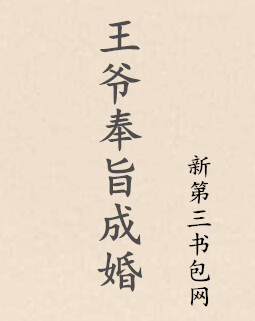 王爷奉旨成婚
新第三书包网